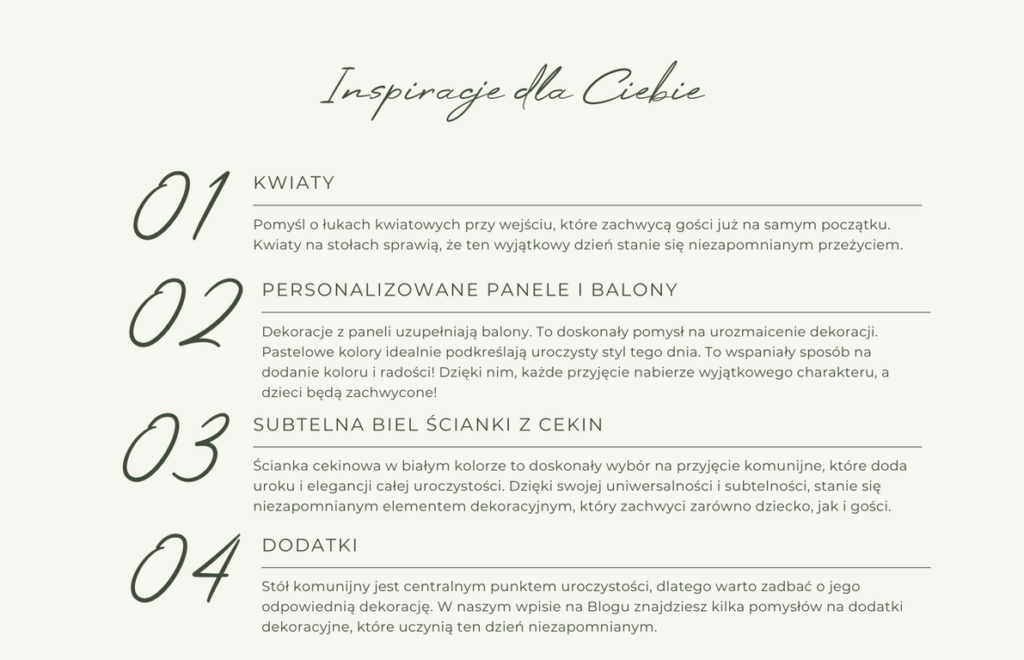 Inspiracje dla Ciebie
01
KWIATY
Pomyśl o łukach kwiatowych przy wejściu, które zachwycą gości już na samym początku.
Kwiaty na stołach sprawią, że ten wyjątkowy dzień stanie się niezapomnianym przeżyciem.
02
PERSONALIZOWANE PANELE I BALONY
Dekoracje z paneli uzupełniają balony. To doskonały pomysł na urozmaicenie dekoracji.
Pastelowe kolory idealnie podkreślają uroczysty styl tego dnia. To wspaniały sposób na
dodanie koloru i radości! Dzięki nim, każde przyjęcie nabierze wyjątkowego charakteru, a
dzieci będą zachwycone!
03
SUBTELNA BIEL ŚCIANKI Z CEKIN
Ścianka cekinowa w białym kolorze to doskonały wybór na przyjęcie komunijne, które doda
uroku i elegancji całej uroczystości. Dzięki swojej uniwersalności i subtelności, stanie się
niezapomnianym elementem dekoracyjnym, który zachwyci zarówno dziecko, jak i gości.
04
DODATKI
Stół komunijny jest centralnym punktem uroczystości, dlatego warto zadbać o jego
odpowiednią dekorację. W naszym wpisie na Blogu znajdziesz kilka pomysłów na dodatki
dekoracyjne, które uczynią ten dzień niezapomnianym.